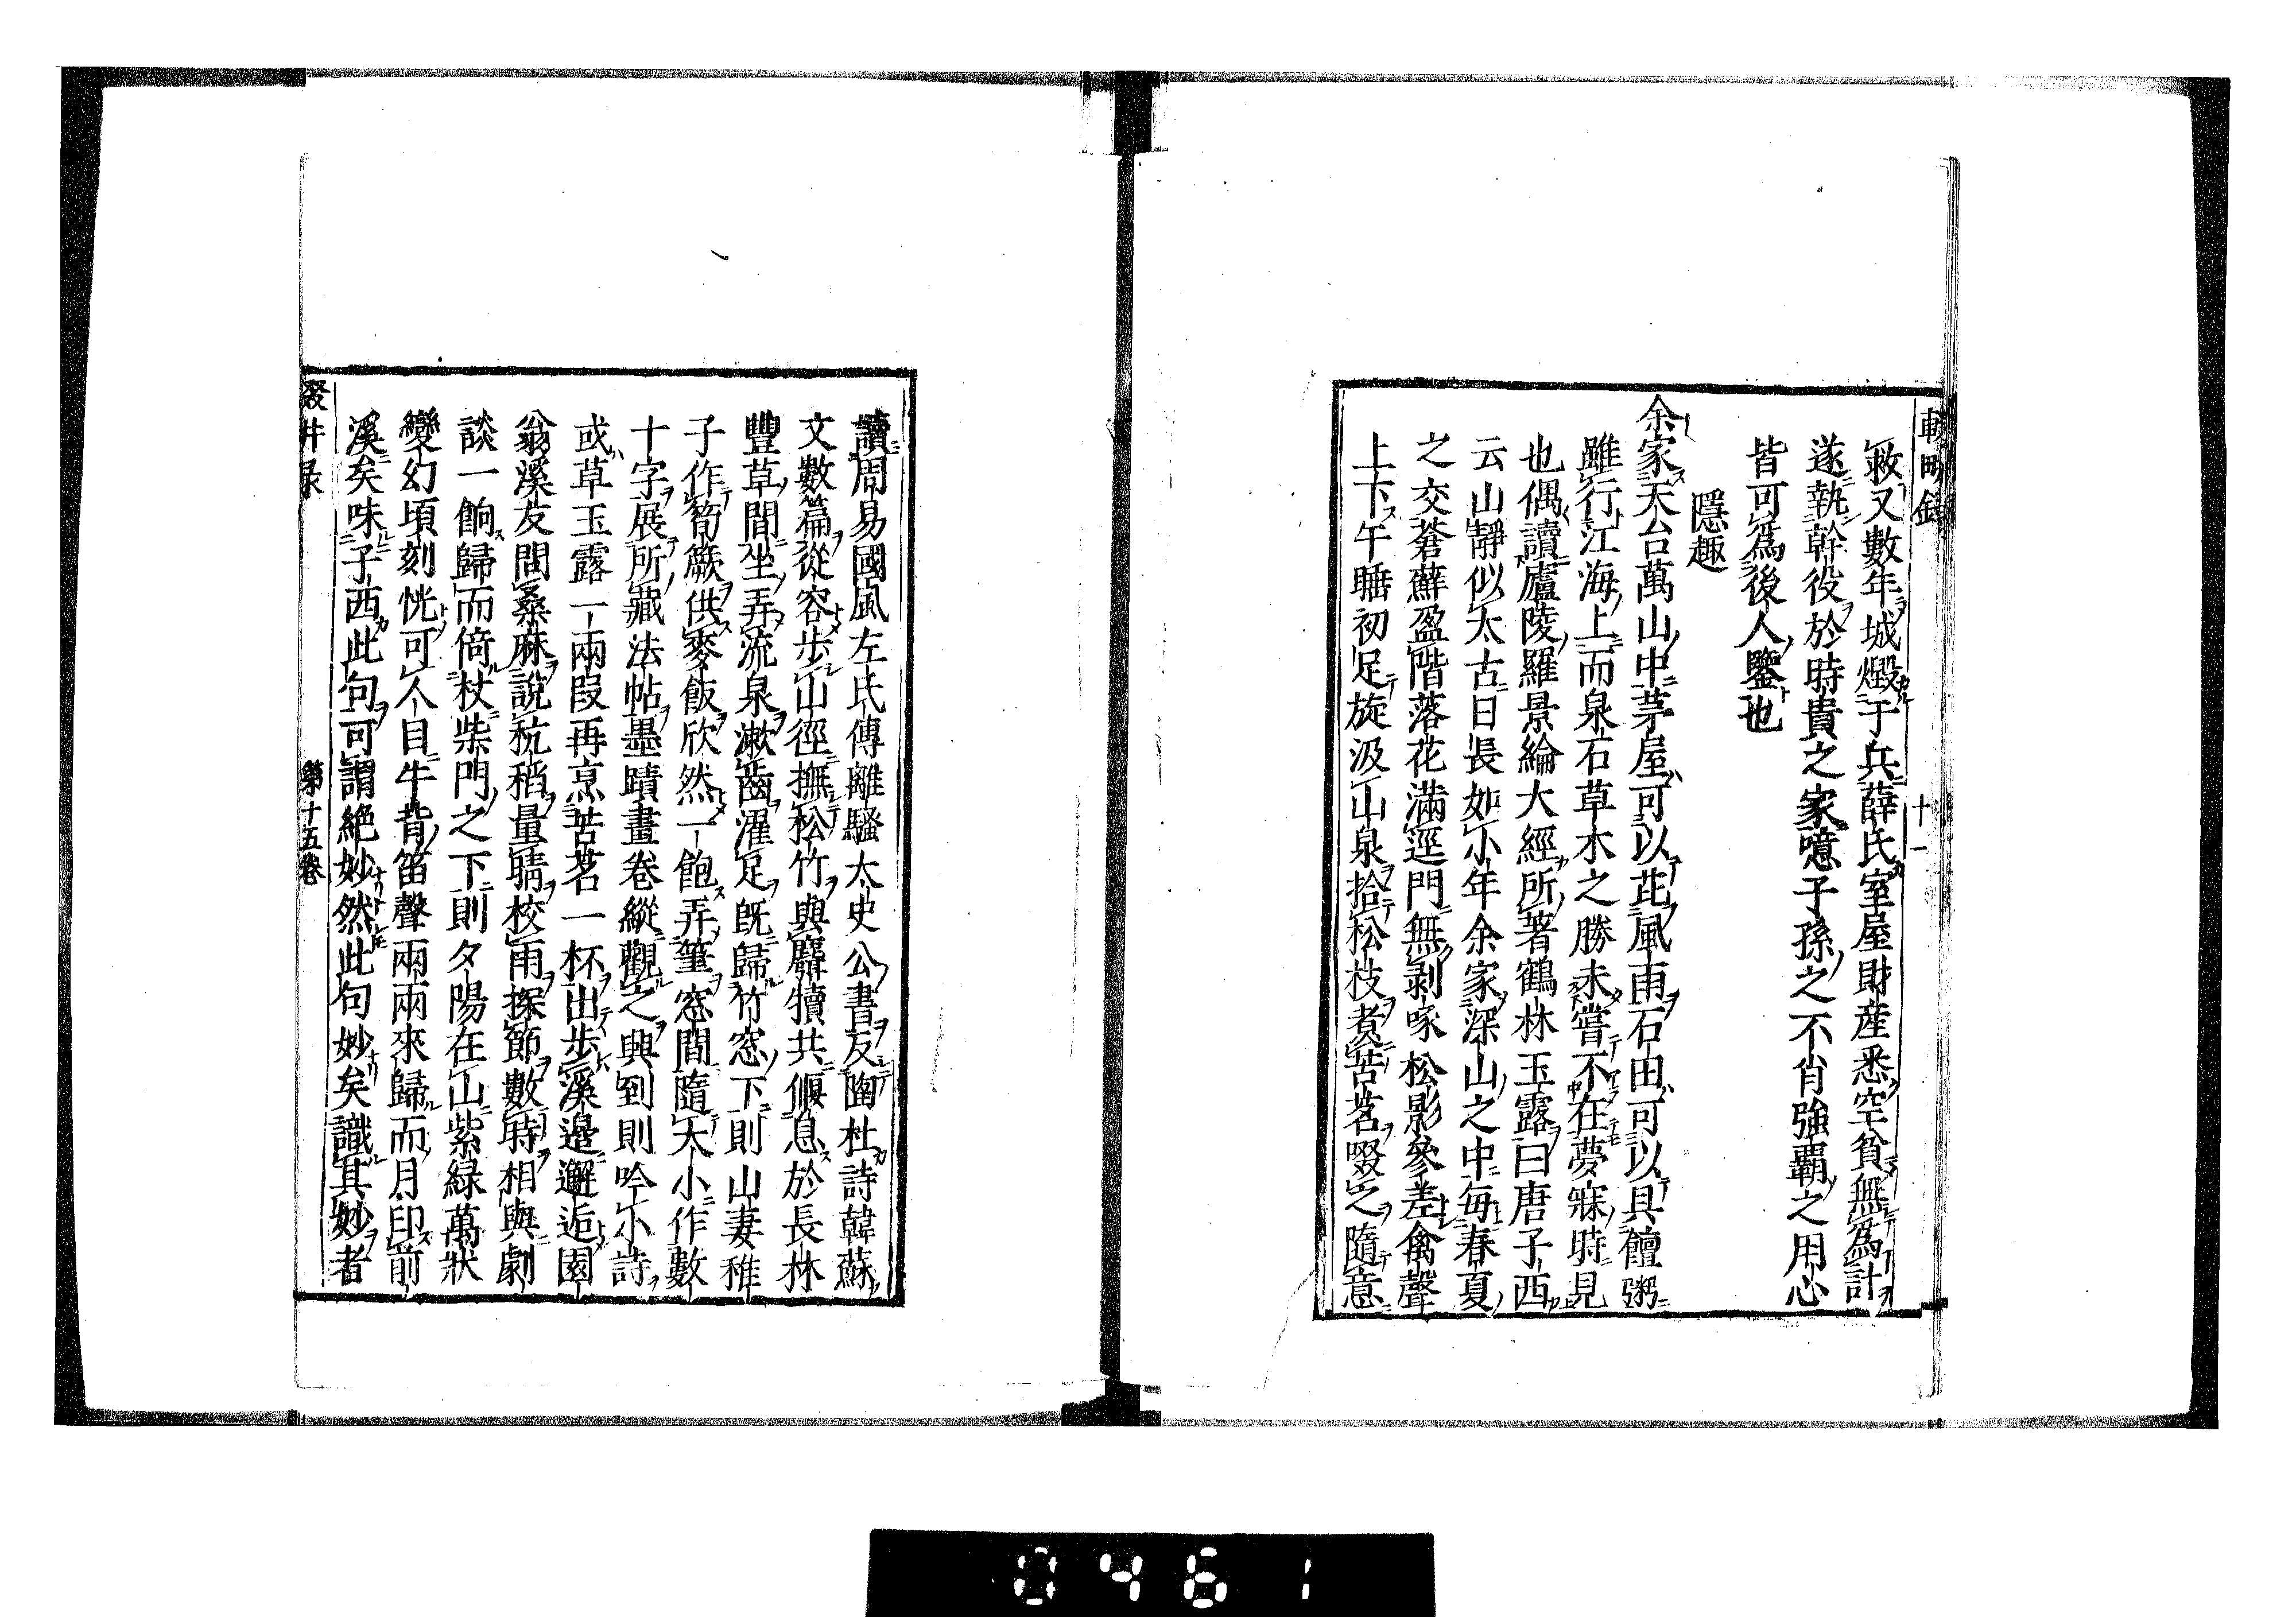 救又數年城燬于兵薛氏室屋財産悉空貧無爲計
遂執幹役於時貴之家噫子孫之不肖強覇之用心
皆可爲後人鑒也
隱趣
余家天台萬山中茅屋可以芘風雨石田可以具饘粥
雖行江海上而泉石草木之勝未嘗不在夢寐時見
也偶讀廬陵羅景綸大經所著鶴林玉露曰唐子西
云山靜似太古日長如小年余家深山之中毎春夏
之交蒼蘚盈階落花滿逕門無剥啄松影參差禽聲
上下午睡初足旋汲山泉拾松枝煑苦茗啜之隨意
讀周易國風左氏傳離騷太史公書及陶杜詩韓蘇
文數篇從容步山徑撫松竹與麛犢共偃息於長林
豐草間坐弄流泉漱齒濯足既歸竹窓下則山妻稚
子作筍蕨供麥飯欣然一飽弄筆窓間隨大小作數
十字展所藏法帖墨蹟畫卷縱觀之興到則吟小詩
或草玉露一兩段再烹苦茗一杯出步溪邊邂逅園
翁溪友問桑麻說秔稻量晴校雨探節數時相與劇
談一餉歸而倚杖柴門之下則夕陽在山紫緑萬狀
變幻頃刻恍可人目牛背笛聲兩兩來歸而月印前
溪矣味子西此句可謂絶妙然此句妙矣識其妙者
第十五卷